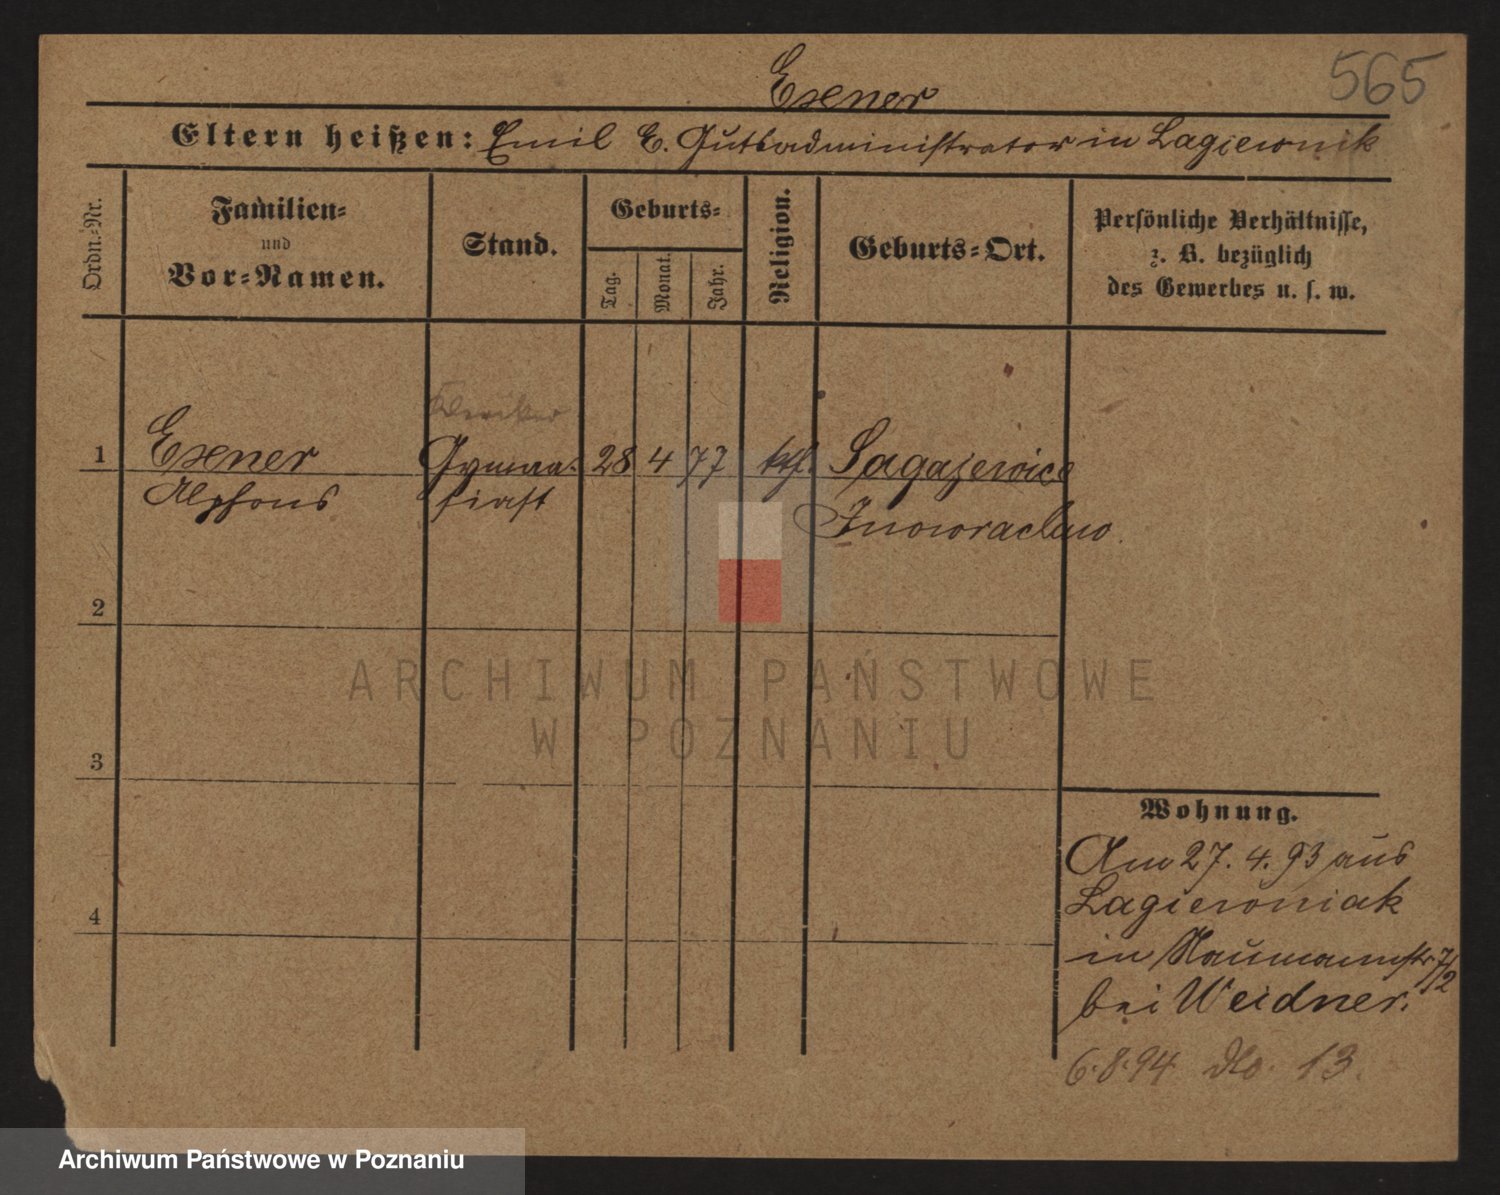 565
Exner
Eltern heißen: Emil E. Gutsadministrator in Lagiewnik
Ordn.-Nr.
Familien-
und
Vor-Namen.
Stand.
Geburts-
Tag.
Monat.
Jahr.
Religion.
Geburts-Ort.
Persönliche Verhältnisse,
z. B. bezüglich
des Gewerbes u. s. w.
1 Exner Gymna- 28 4 77 kth.
Alphons siast Inowraclaw.
2
3
4
Wohnung.
Am 27. 4. 93 aus
Lagiewniak
in Naumannstr. 7/2
bei Weidner.
6.8.94 dto. 13.
ARCHIWUM PAŃSTWOWE
W POZNANIU
Archiwum Państwowe w Poznaniu